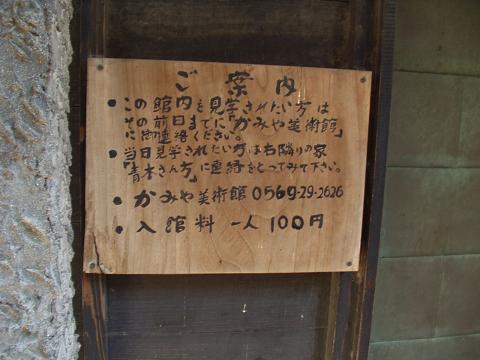 ご案内
●この館内を見学されたい方は
その前日までに「かみや美術館」
に御連絡ください。
●当日見学されたい方は右隣りの家
「青木さん方」に連絡をとってみて下さい。
●かみや美術館0569-29-2626
●入館料 一人100円